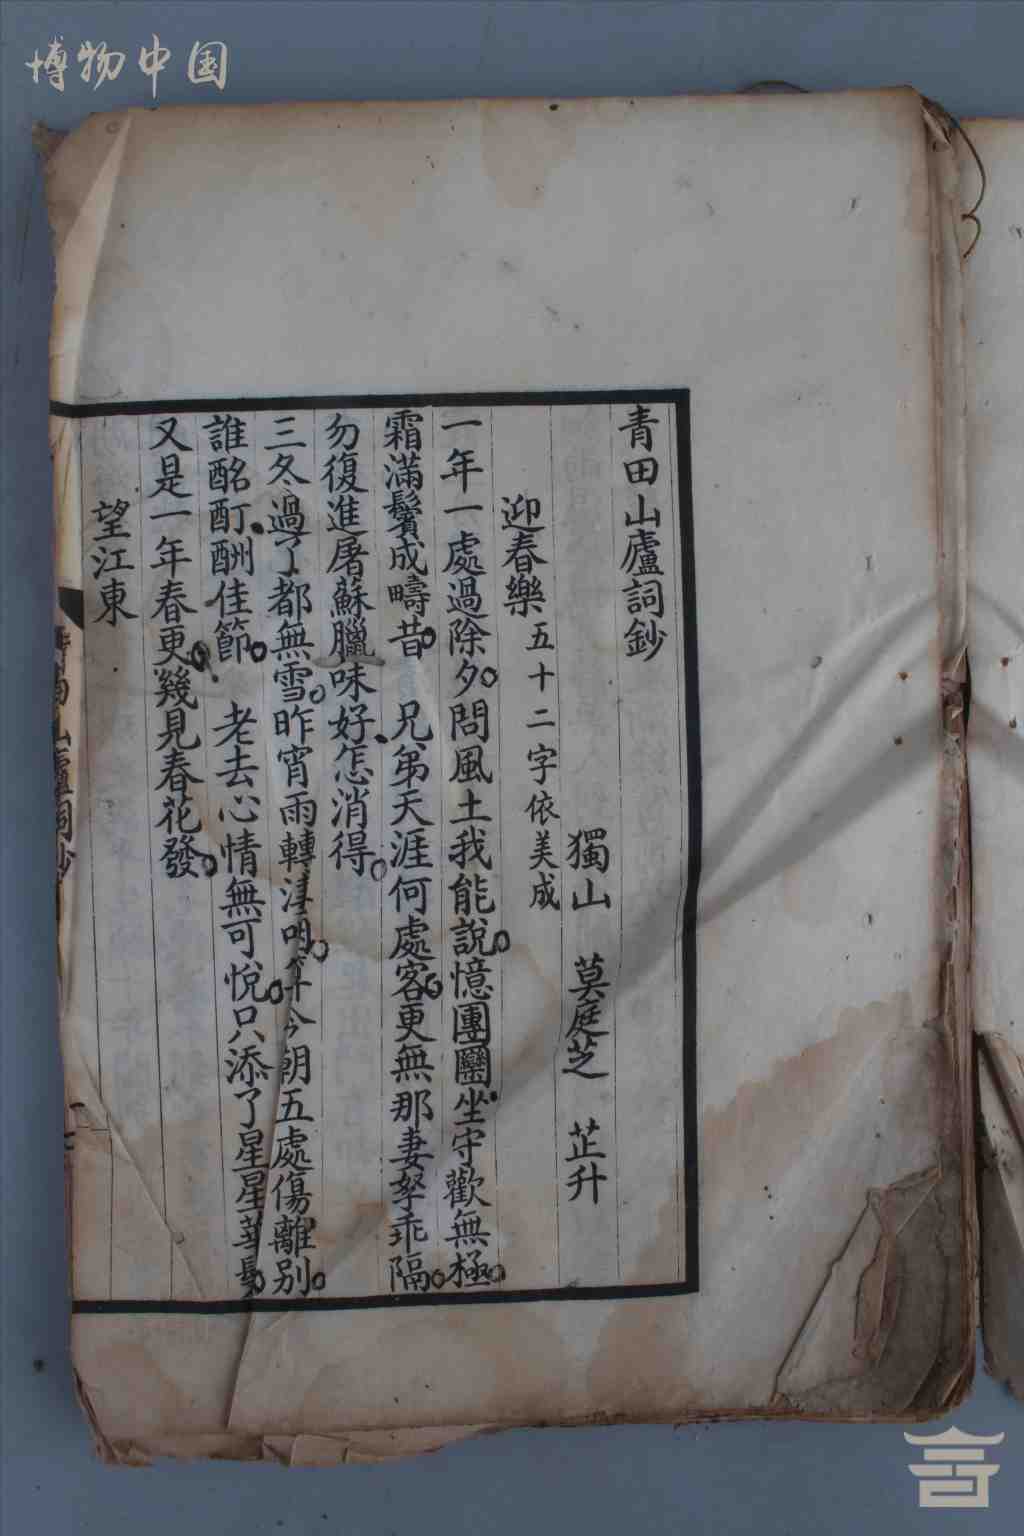 博物中国
青田山廬詞鈔
獨山 莫庭芝 芷升
迎春樂 五十二字依美成
一年一處過除夕問風土我能說憶團圞坐守歡無極
霜滿鬢成疇昔 兄弟天涯何處客更無那妻孥乖隔
勿復進屠蘇臘味好怎消得
三冬過了都無雪昨宵雨轉淒咽算今朝五處傷離别
誰酩酊酬佳節 老去心情無可悅只添了星星華髮
又是一年春更幾見春花發
望江東
山廬詞鈔